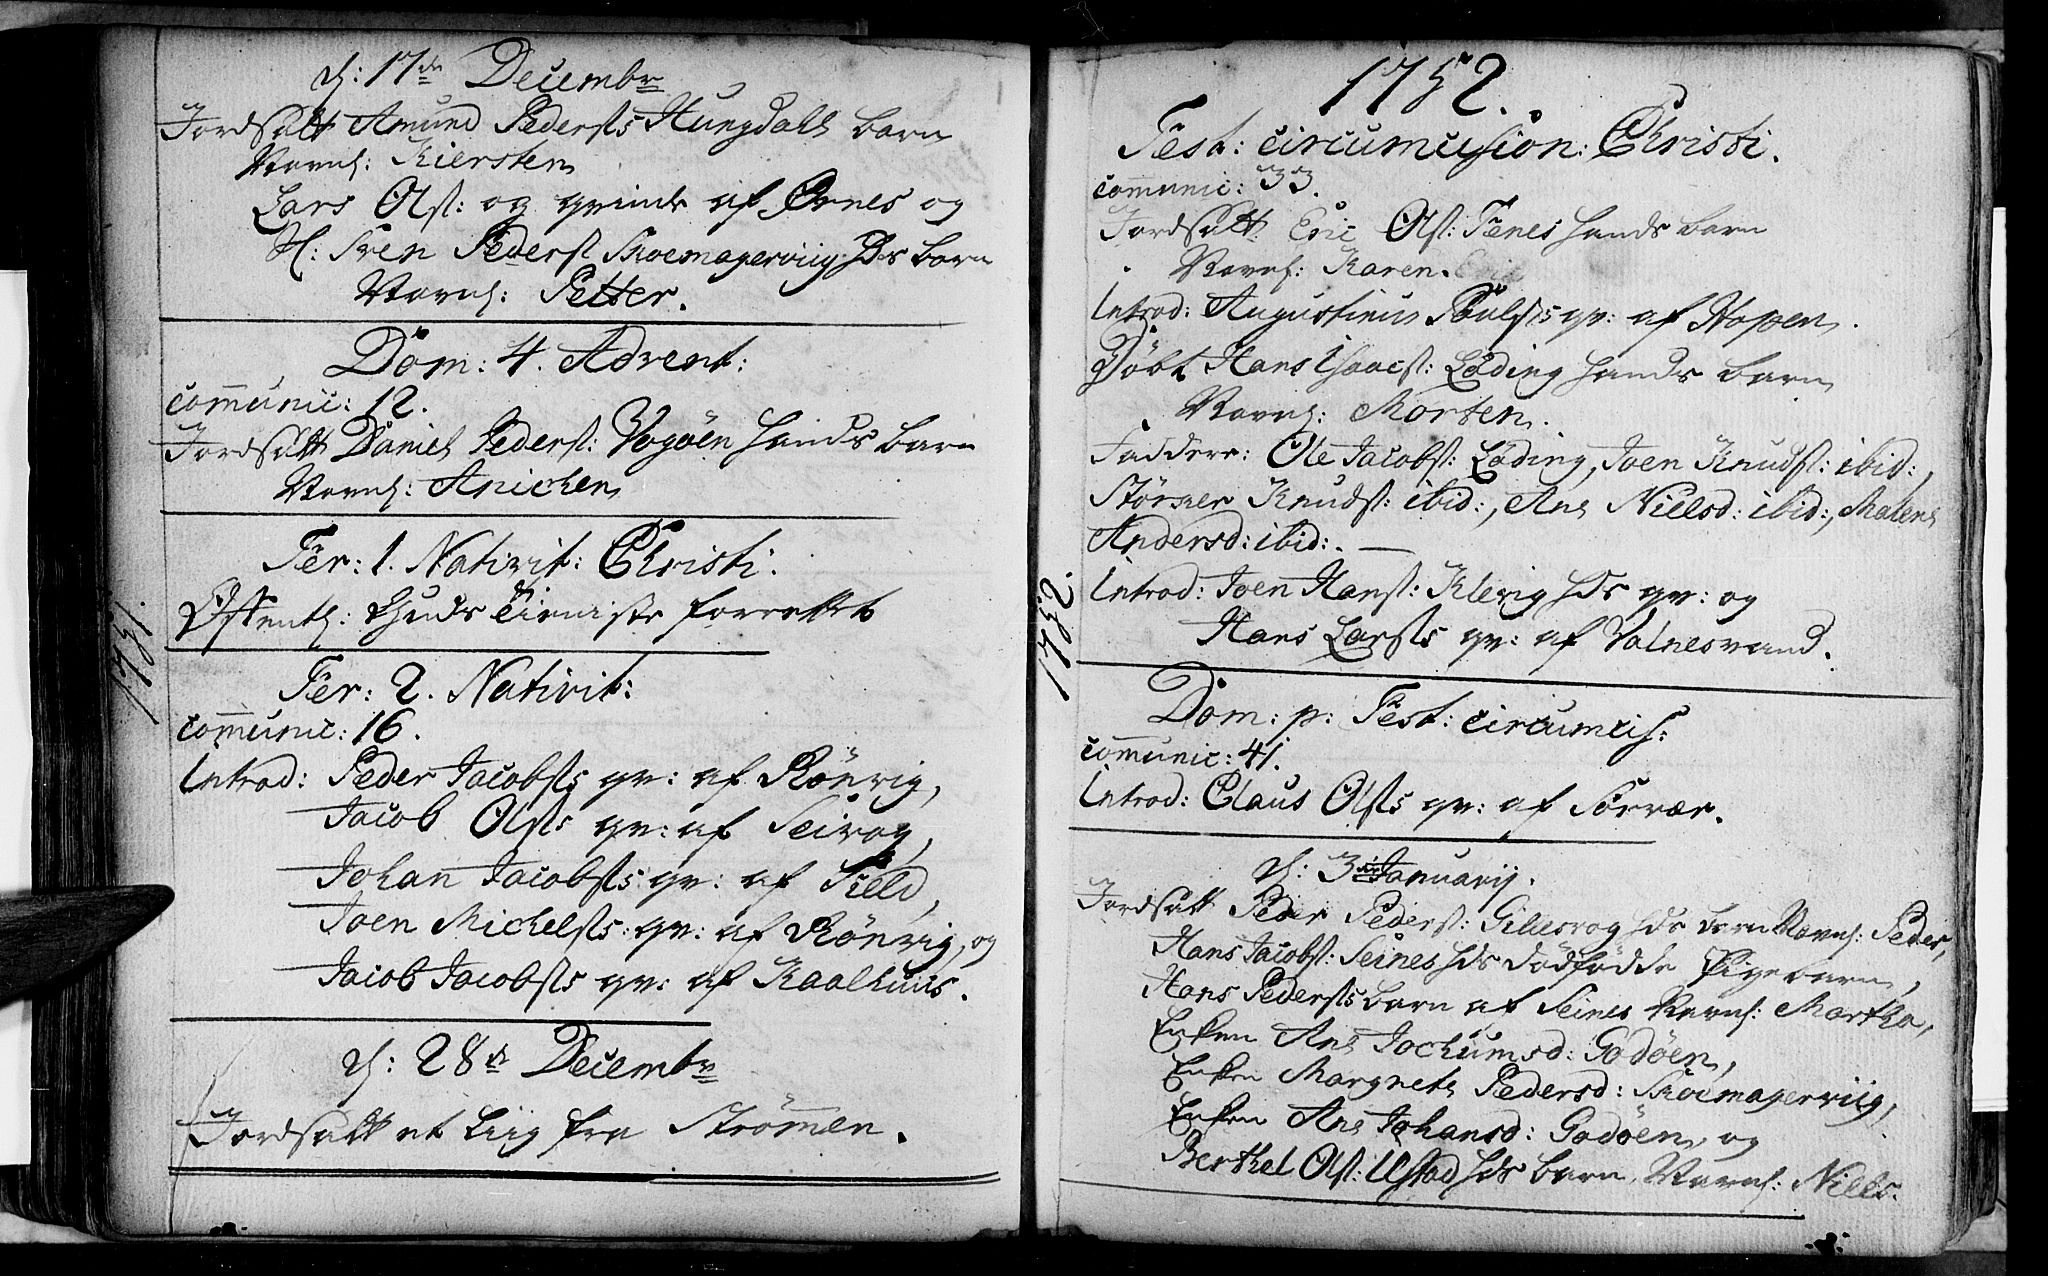 d: 17de Decembr
Jordsatt Amund Pedersøns Hungdals barn
Navnl: Kiersten
Lars Olss: og qvinde af Ørnes og
H: Sven Pederss Skoemagerviig hds barn
Navnl: Petter.
Dom: 4. Advent:
comunic: 12.
Jordsatt Daniel Pederss: Vogøen hands barn
Navnl: Anichen
Fer: 1. Nativit: Christi.
Offentl: Guds tieniste forrettet
Fer: 2. Nativit:
comunic: 16.
Introd: Peder Jacobsøns qv: af Rønvig,
Jacob Olss qv: af Seivog,
Johan Jacobss qv: af Field,
Joen Michelss: qv: af Rønvig, og
Jacob Jacobss qv: af Kaalhuus.
d: 28de Decembr
Jordsatt et Liig fra Strømmen.
1751.
1752.
Fest: circumcision: Christi.
comunic: 33.
Jordsatt: Eric Olss: Fenes hands barn
Navnl: Karen.
Introd: Augustinus Poulss qv: af Hopen.
Døbt Hans Isaacss: Løding hands barn
Navnl: Morten.
Faddere: Ole Jacobss: Løding, Joen Knudss: ibid:,
Størker Knudss: ibid:, Ane Nielsd: ibid:, Malene
Andersd: ibid:.
Introd: Joen Hanss: Klevig hds qv: og
Hans Larss qv: af Valnesvand.
1752.
Dom: p: Fest: circumcis:
comunic: 41.
Introd: Claus Olss qv: af Sørvær.
d: 3die Januarij.
Jordsatt Peder Pederss: Gillesvog hds barn Navnl: Peder,
Hans Jacobss: Seines hds dødfødde Pigebarn,
Hans Pederss barn af Seines Navnl: Martha,
Enken Ane Jochumsd: Godøen,
Enken Margrete Pedersd: Skoemagerviig,
Enken Ane Johansd: Godøen, og
Berthel Olss: Ystad hds barn, Navnl: Niels.